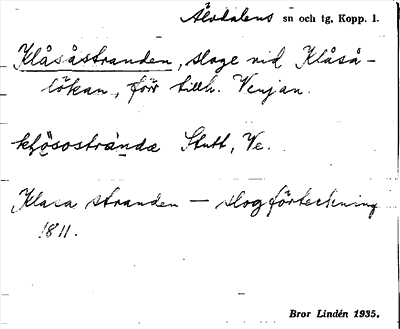 Älvdalens sn och tg, Kopp. l.
Klåsåstranden, sloge vid Klåså-
lökan, förr tillh. Venjan.
Stutt, Ve.
Klasa stranden — slogförteckning
1811.
Bror Lindén 1935.